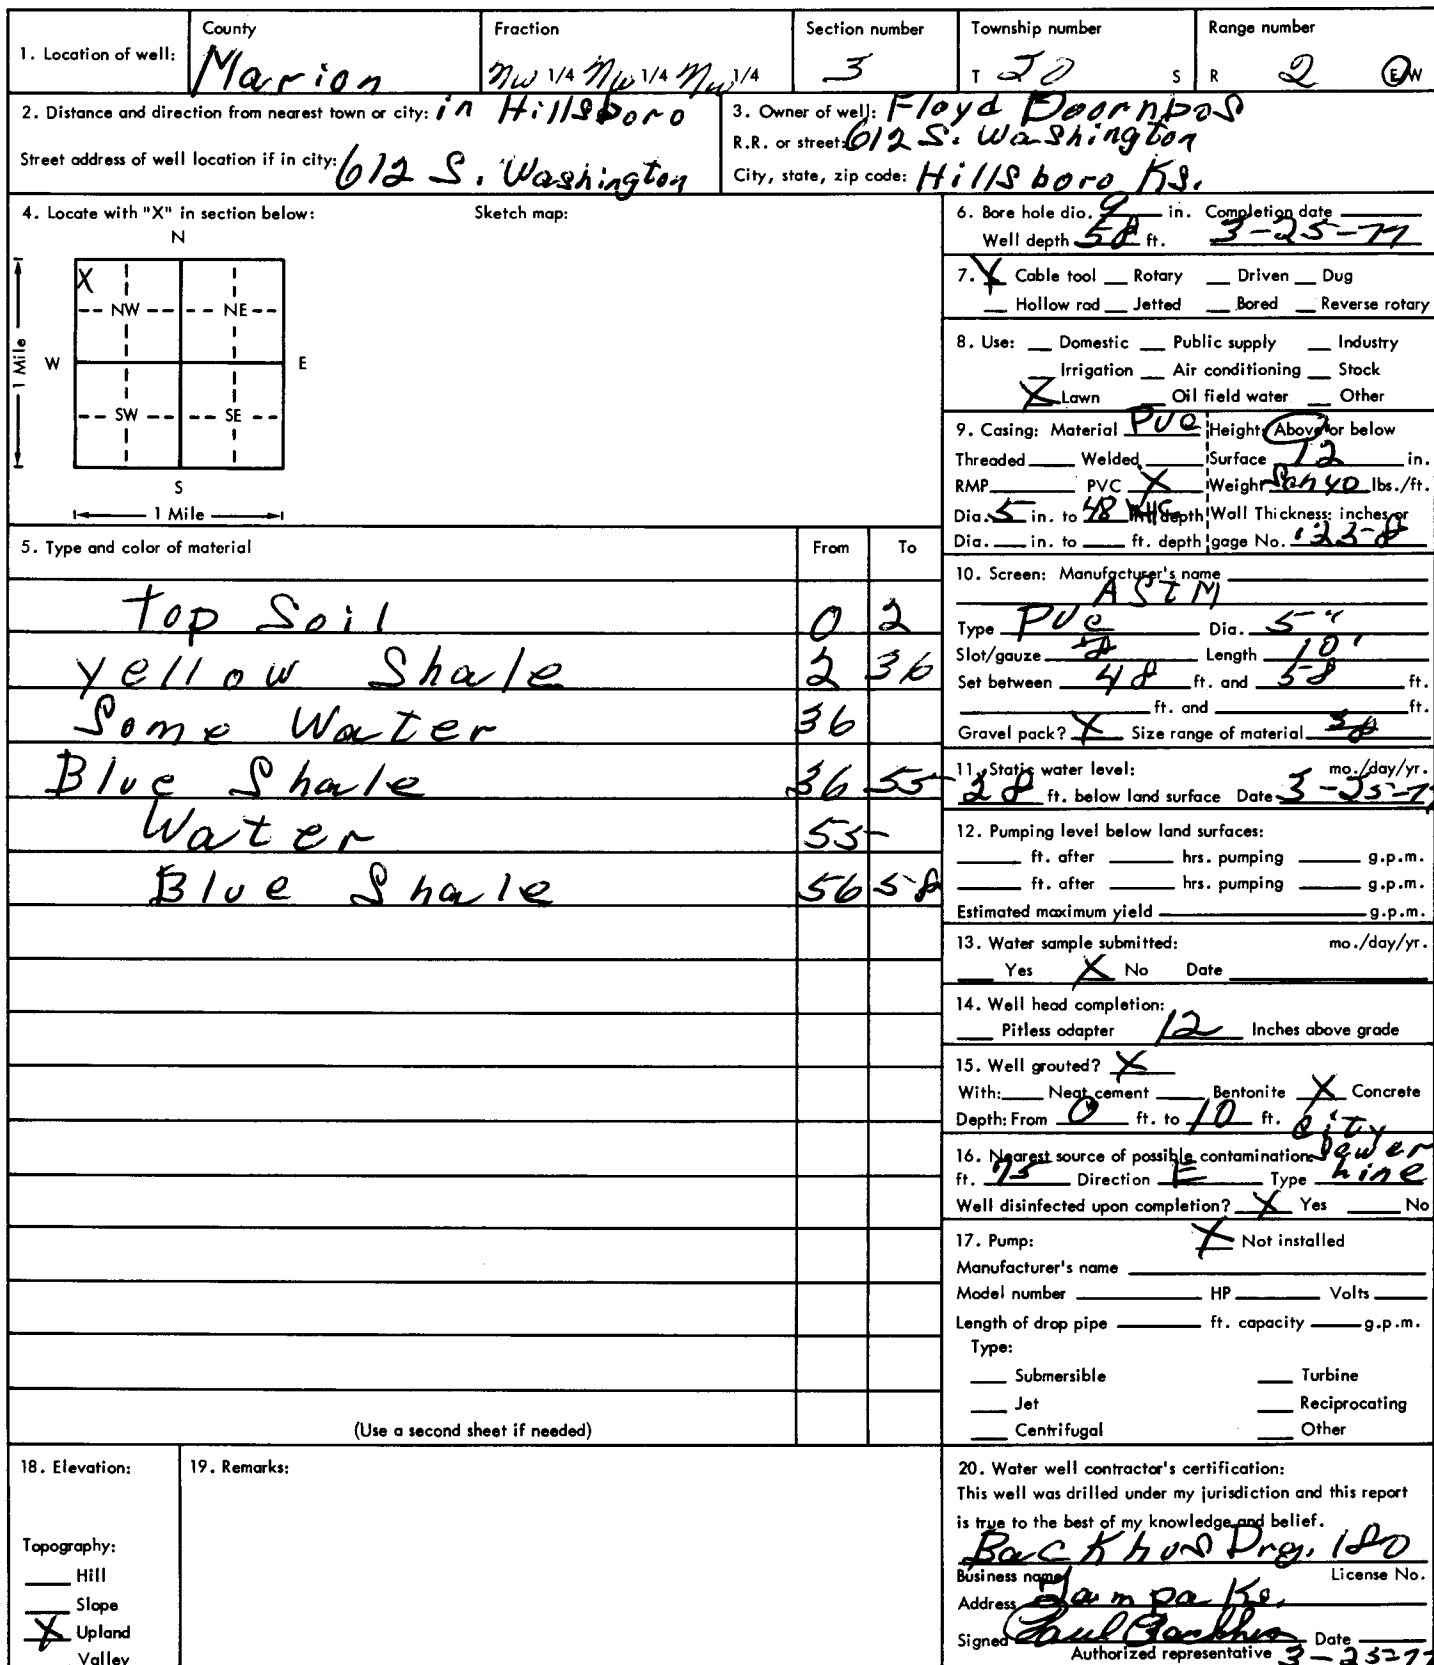 1. Location of well: County Marion Fraction NW 1/4 NW 1/4 NW 1/4 Section number 3 Township number T 20 S Range number R 2 E W
2. Distance and direction from nearest town or city: in Hillsboro
Street address of well location if in city: 612 S. Washington
3. Owner of well: Floyd Doornbos
R.R. or street: 612 S. Washington
City, state, zip code: Hillsboro Ks.
4. Locate with "X" in section below: Sketch map:
N
X
NW NE
W E
1 Mile
SW SE
S
1 Mile
5. Type and color of material From To
Top Soil 0 2
Yellow Shale 2 36
Some Water 36
Blue Shale 36 55
Water 55
Blue Shale 56 58
(Use a second sheet if needed)
6. Bore hole dia. 9 in. Completion date
Well depth 58 ft. 3-25-77
7. X Cable tool Rotary Driven Dug
Hollow rod Jetted Bored Reverse rotary
8. Use: Domestic Public supply Industry
Irrigation Air conditioning Stock
X Lawn Oil field water Other
9. Casing: Material PVC Height: Above or below
Threaded Welded Surface 12 in.
RMP PVC X Weight Sch 40 lbs./ft.
Dia. 5 in. to 48 ft. depth Wall Thickness: inches or
Dia. in. to ft. depth gage No. .258
10. Screen: Manufacturer's name
ASTM
Type PVC Dia. 5"
Slot/gauze Length 10'
Set between 48 ft. and 58 ft.
ft. and ft.
Gravel pack? X Size range of material
11. Static water level: mo./day/yr.
28 ft. below land surface Date 3-25-77
12. Pumping level below land surfaces:
ft. after hrs. pumping g.p.m.
ft. after hrs. pumping g.p.m.
Estimated maximum yield g.p.m.
13. Water sample submitted: mo./day/yr.
Yes X No Date
14. Well head completion:
Pitless adapter 12 Inches above grade
15. Well grouted? X
With: Neat cement Bentonite X Concrete
Depth: From 0 ft. to 10 ft.
16. Nearest source of possible contamination: City Sewer
ft. 75 Direction E Type Line
Well disinfected upon completion? X Yes No
17. Pump: X Not installed
Manufacturer's name
Model number HP Volts
Length of drop pipe ft. capacity g.p.m.
Type:
Submersible Turbine
Jet Reciprocating
Centrifugal Other
18. Elevation:
Topography:
Hill
Slope
X Upland
Valley
19. Remarks:
20. Water well contractor's certification:
This well was drilled under my jurisdiction and this report
is true to the best of my knowledge and belief.
Backhus Drg. 180
Business name License No.
Address Tampa Ks.
Signed Paul Backhus Date
Authorized representative 3-25-77